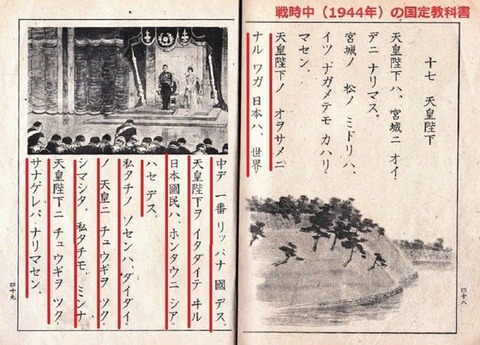 戦時中（1944年）の国定教科書
十七 天皇陛下
天皇陛下ハ、宮城ニ オイ
デニ ナリマス。
宮城ノ 松ノ ミドリハ、
イツ ナガメテモ カハリ
マセン。
天皇陛下ノ オヲサメニ
ナル ワガ 日本ハ、世界
四十八
中デ 一番 リッパナ 國 デス。
天皇陛下ヲ イタダイテ ヰル
日本國民ハ、ホンタウニ シア
ハセ デス。
私タチノ ソセンハ、ダイダイ
ノ 天皇ニ チュウギヲ ツク
シマシタ。私タチモ、ミンナ
天皇陛下ニ チュウギヲ ツク
サナゲレバ ナリマセン。
四十九